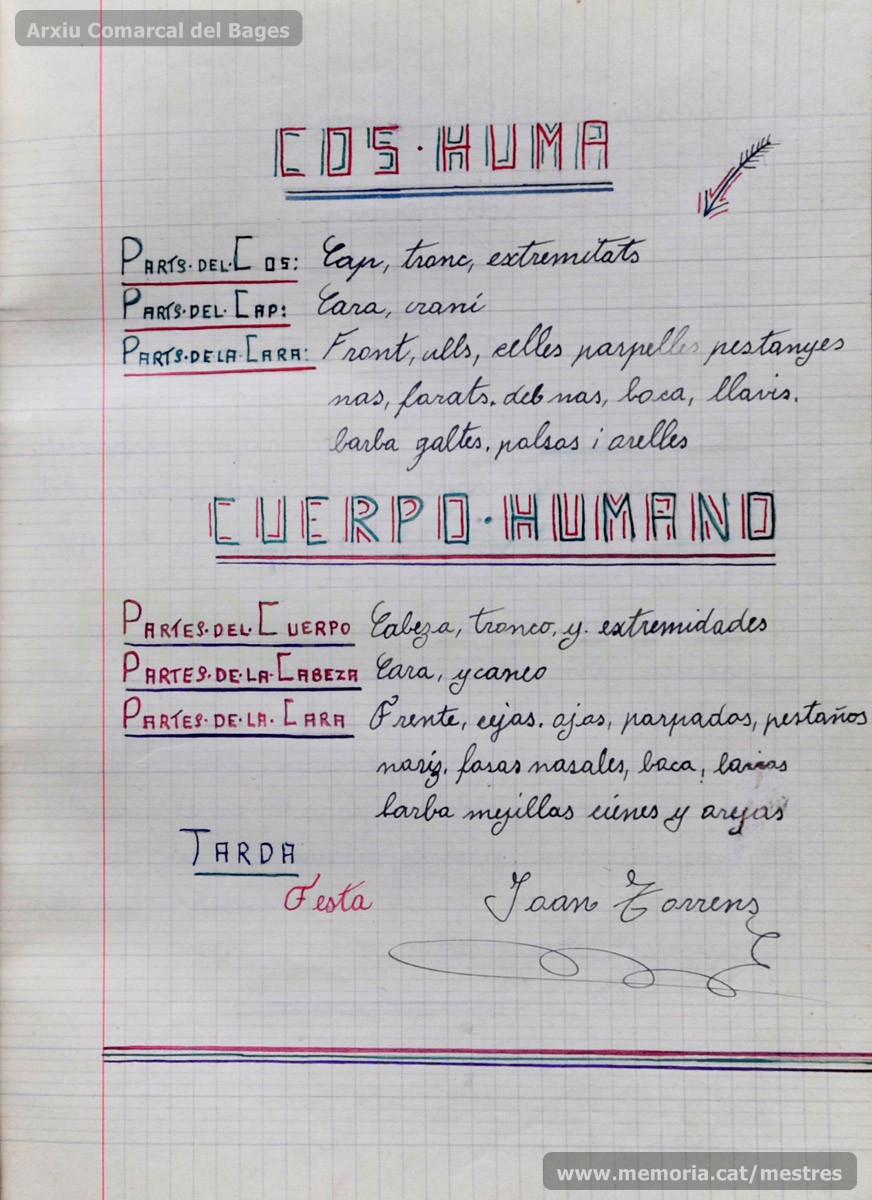 Arxiu Comarcal del Bages
COS·HUMA
PARTS·DEL·COS: Cap, tronc, extremitats
PARTS·DEL·CAP: Cara, crani
PARTS·DE LA·CARA: Front, ulls, celles parpelles pestanyes
nas, forats. del nas, boca, llavis.
barba galtes. polsos i orelles
CUERPO·HUMANO
PARTES·DEL·CUERPO Cabeza, tronco, y. extremidades
PARTES·DE·LA·CABEZA Cara, y caneo
PARTES·DE·LA·CARA Frente, cejas. ojos, parpados, pestaños
nariz. fosas nasales, boca, lavios
barba mejillas cienes y orejas
TARDA
Festa Joan Torrens
www.memoria.cat/mestres